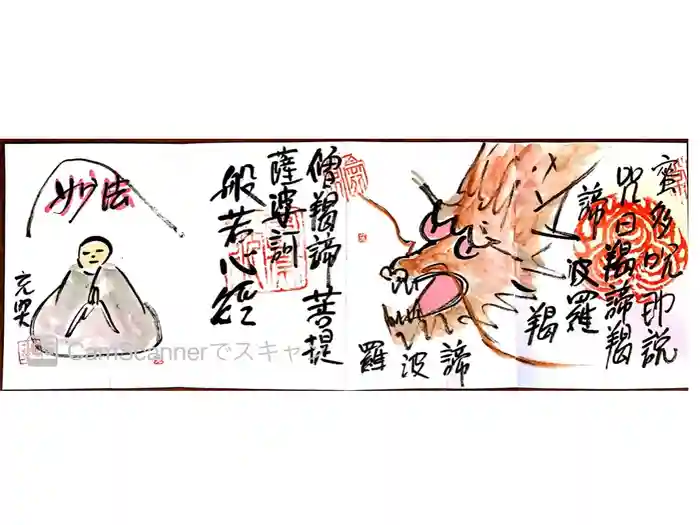 齋多呪即説
呪曰羯諦羯
諦波羅
羯
諦波羅
僧羯諦菩提
薩婆訶
般若心経
妙法
CamScannerでスキャ